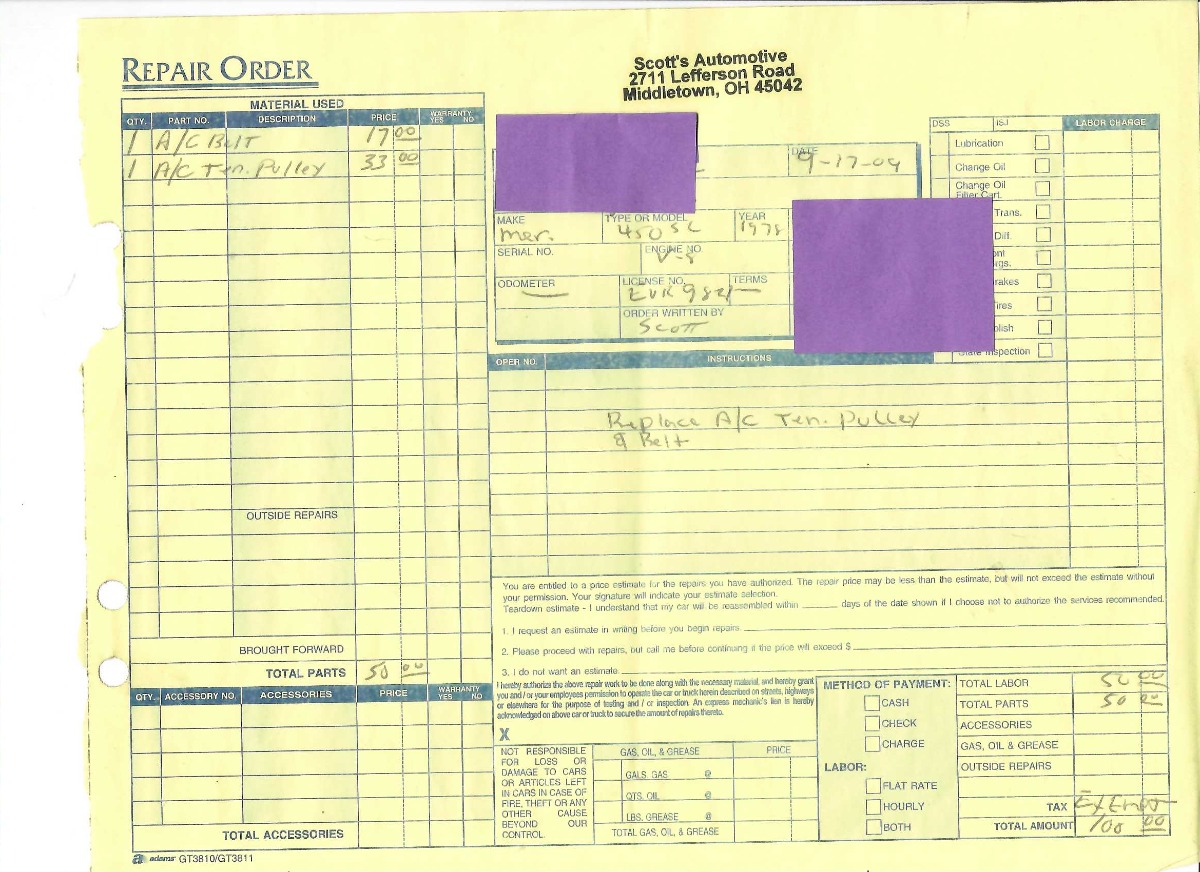 REPAIR ORDER
Scott's Automotive
2711 Lefferson Road
Middletown, OH 45042
MATERIAL USED
QTY. PART NO. DESCRIPTION PRICE WARRANTY YES NO
1 A/C Belt 17 00
1 A/C Ten. Pulley 33 00
OUTSIDE REPAIRS
BROUGHT FORWARD
TOTAL PARTS 50 00
QTY. ACCESSORY NO. ACCESSORIES PRICE WARRANTY YES NO
TOTAL ACCESSORIES
adams GT3810/GT3811
DATE 9-17-09
MAKE Mer.
TYPE OR MODEL 450 SL
YEAR 1978
SERIAL NO.
ENGINE NO. V-8
ODOMETER —
LICENSE NO. EVR 9821
TERMS —
ORDER WRITTEN BY Scott
DSS ISJ LABOR CHARGE
Lubrication
Change Oil
Change Oil
Filter Cart.
Trans.
Diff.
State Inspection
OPER NO. INSTRUCTIONS
Replace A/C Ten. Pulley
& Belt
You are entitled to a price estimate for the repairs you have authorized. The repair price may be less than the estimate, but will not exceed the estimate without
your permission. Your signature will indicate your estimate selection.
Teardown estimate - I understand that my car will be reassembled within ______ days of the date shown if I choose not to authorize the services recommended.
1. I request an estimate in writing before you begin repairs
2. Please proceed with repairs, but call me before continuing if the price will exceed $
3. I do not want an estimate
I hereby authorize the above repair work to be done along with the necessary material, and hereby grant
you and / or your employees permission to operate the car or truck herein described on streets, highways
or elsewhere for the purpose of testing and / or inspection. An express mechanic's lien is hereby
acknowledged on above car or truck to secure the amount of repairs thereto.
X
NOT RESPONSIBLE
FOR LOSS OR
DAMAGE TO CARS
OR ARTICLES LEFT
IN CARS IN CASE OF
FIRE, THEFT OR ANY
OTHER CAUSE
BEYOND OUR
CONTROL.
GAS, OIL, & GREASE PRICE
GALS. GAS @
QTS. OIL @
LBS. GREASE @
TOTAL GAS, OIL, & GREASE
METHOD OF PAYMENT:
CASH
CHECK
CHARGE
LABOR:
FLAT RATE
HOURLY
BOTH
TOTAL LABOR 50 00
TOTAL PARTS 50 00
ACCESSORIES
GAS, OIL & GREASE
OUTSIDE REPAIRS
TAX Exempt
TOTAL AMOUNT 100 00